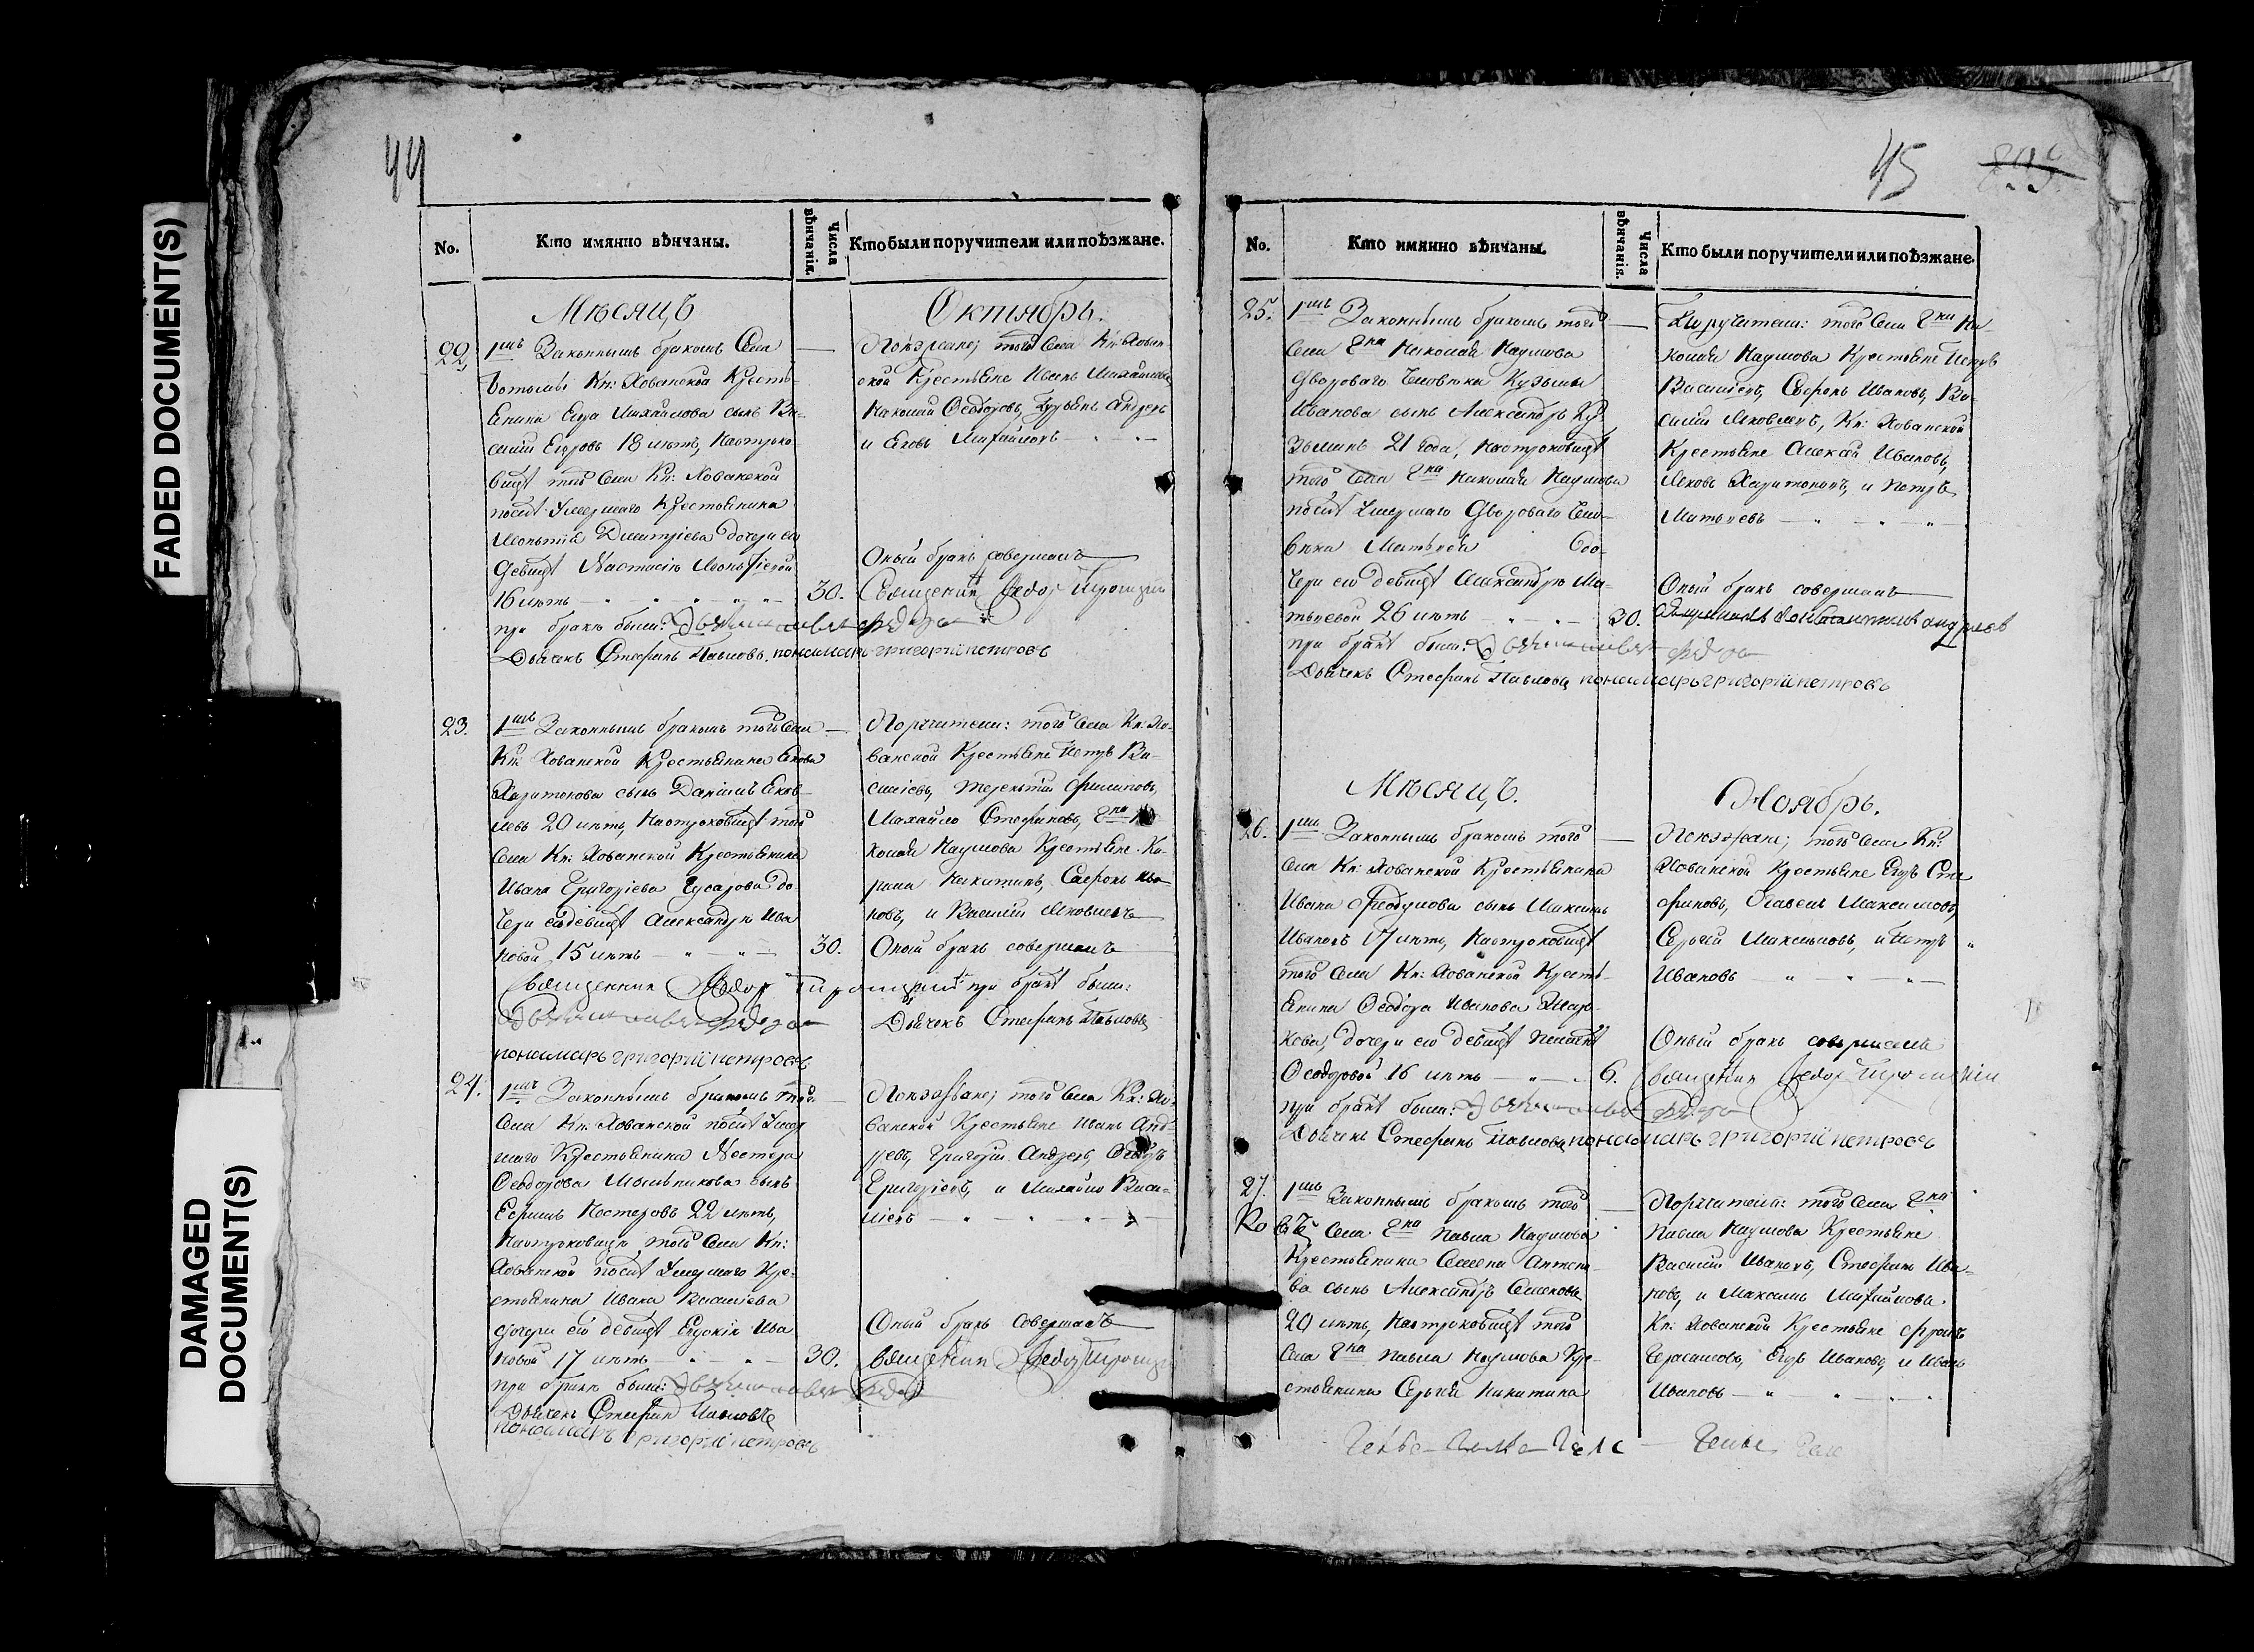 FADED DOCUMENT(S)
DAMAGED DOCUMENT(S)
44
No.
Кто имянно вѣнчаны.
Числа вѣнчанія.
Кто были поручители или поѣзжане.
Мѣсяцъ
Октябрь.
22,
1мъ Законнымъ бракомъ Села
Кн: Хованской Кресть-
янина Егора Михайлова сынъ Ва-
силій Егоровъ 18 лѣтъ, Наотроко-
вицѣ того Села Кн: Хованской
послѣ Умершаго Крестьянина
Дмитріева дочери его
девицѣ Настасіи
16 лѣтъ
30.
при бракѣ были:
Дьячекъ Стефанъ Павловъ. пономарь григорiй петровъ
Поѣзжане; того Села Кн: Хован-
ской Крестьяне Иванъ Михайловъ
Николай Феодоровъ, Андреевъ
и Яковъ Михайловъ
Оный бракъ совершалъ
Священник Федор
23.
1мъ Законнымъ бракомъ того Села
Кн: Хованской Крестьянина Якова
Харитонова сынъ Данiилъ Яков-
левъ 20 лѣтъ, Наотроковицѣ того
Села Кн: Хованской Крестьянина
Ивана Григорiева Гусарова до-
чери его девицѣ Александрѣ Ива
новой 15 лѣтъ
30.
Поручители: того Села Кн: Хо-
ванской Крестьяне Петръ Ва-
силiевъ, Терентiй Филиповъ,
Михайло Стефановъ, Гна Ни
колая Наумова Крестьяне Ка-
рпъ Никитинъ, Сафронъ Ива
новъ, и Василiй Яковлевъ
Оный бракъ совершалъ
Священник Федор при бракѣ были:
Дьячекъ Стефанъ Павловъ
пономарь григорiй петровъ
24.
1мъ Законнымъ бракомъ того
Села Кн: Хованской послѣ Умер
шаго Крестьянина Нестера
Феодорова Мельникова сынъ
Ефимъ Нестеровъ 22 лѣтъ,
Наотроковицѣ того Села Кн:
Хованской послѣ Умершаго Кре-
стьянина Ивана Василiева
дочери его девицѣ Евдокiи Ива
новой 17 лѣтъ
30.
при бракѣ были:
Дьячекъ Стефанъ Павловъ
пономарь григорiй петровъ
Поѣзжане; того Села Кн: Хо-
ванской Крестьяне Иванъ Анд-
реевъ, Григорiй Андреевъ, Федоръ
Григорiевъ, и Михайло Васи-
лiевъ
Оный бракъ совершалъ
священник Федор
45
No.
Кто имянно вѣнчаны.
Числа вѣнчанія.
Кто были поручители или поѣзжане.
25.
1мъ Законнымъ бракомъ того
Села Гна Николая Наумова
Двороваго Человѣка Кузьмы
Иванова сынъ Александръ Ку-
зьминъ 21 года, Наотроковицѣ
того Села Гна Николая Наумова
послѣ Умершаго Двороваго Чело-
вѣка Матвея до-
чери его девицѣ Александрѣ Ма-
твеевой 26 лѣтъ
30.
при бракѣ были:
Дьячекъ Стефанъ Павловъ пономарь григорiй петровъ
Поручители: того Села Гна Ни-
колая Наумова Крестьяне Петръ
Василiевъ, Сафронъ Ивановъ, Ва-
силiй Яковлевъ, Кн: Хованской
Крестьяне Алексей Ивановъ,
Яковъ Харитоновъ, и Петръ
Матвеевъ
Оный бракъ совершалъ
андреев
Мѣсяцъ.
Ноябрь.
26.
1мъ Законнымъ бракомъ того
Села Кн: Хованской Крестьянина
Ивана сынъ Максимъ
Ивановъ 17 лѣтъ, Наотроковицѣ
того Села Кн: Хованской Кресть-
янина Феодора Иванова
кова, дочери его девицѣ
Феодоровой 16 лѣтъ
6.
при бракѣ были:
Дьячекъ Стефанъ Павловъ пономарь григорiй петровъ
Поѣзжане; того Села Кн:
Хованской Крестьяне Егоръ Сте
фановъ, Павелъ Максимовъ,
Сергѣй Максимовъ, и Петръ
Ивановъ
Оный бракъ совершалъ
священник Федор
27.
1мъ Законнымъ бракомъ того
Села Гна Павла Наумова
Крестьянина Семена Антоно-
ва сынъ Александръ Семеновъ
20 лѣтъ, Наотроковицѣ того
Села Гна Павла Наумова Кре-
стьянина Сергѣя Никитина
Поручители: того Села Гна
Павла Наумова Крестьяне
Василiй Ивановъ, Стефанъ Ива-
новъ, и Максимъ Михайловъ.
Кн: Хованской Крестьяне
Герасимовъ, Егоръ Ивановъ, и Иванъ
Ивановъ